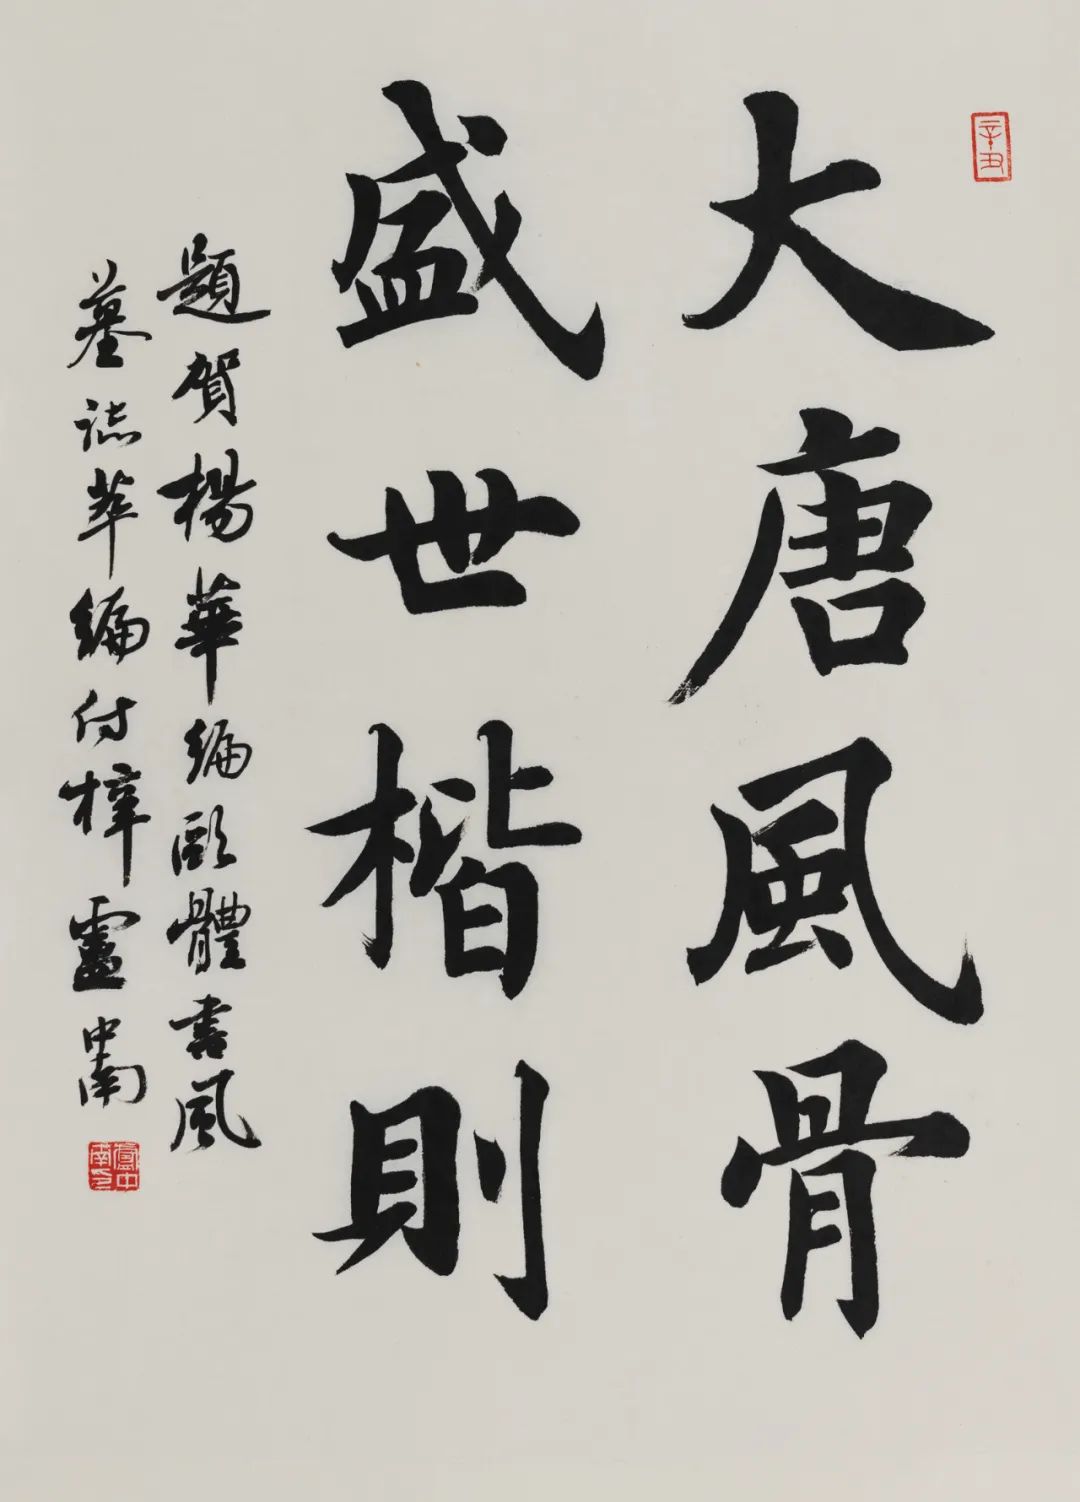 辛丑
大唐風骨
盛世楷則
題賀楊華編歐體書風
墓誌萃編付梓盧中南
盧中南印